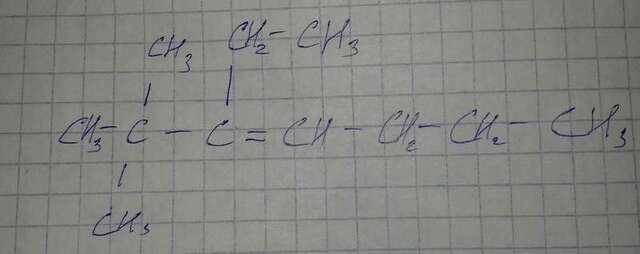 CH₃ CH₂-CH₃
CH₃-C-C=CH-CH₂-CH₂-CH₃
CH₃